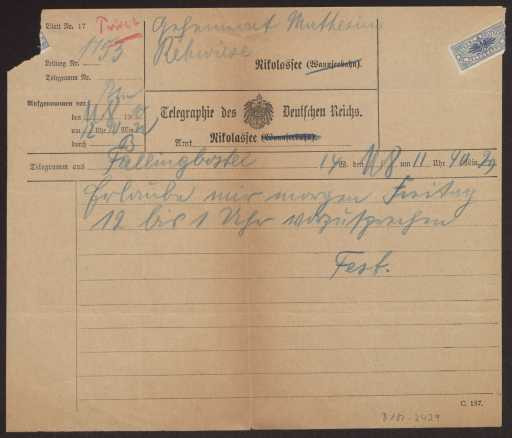 Blatt Nr. 17
Privat
Geheimrat Muthesius
1153
Rehwiese
Leitung Nr.
Nikolassee (Wannseebahn).
Telegramm Nr.
Aufgenommen von
den 11/8 19
um 12 Uhr Min.
durch B
Telegraphie des Deutschen Reichs.
Amt Nikolassee (Wannseebahn).
Telegramm aus Fallingbostel 14 W. den 11/8 um 11 Uhr 40 Min.
Erlaube mir morgen Freitag
12 bis 1 Uhr vorzusprechen
Fest.
C. 187.